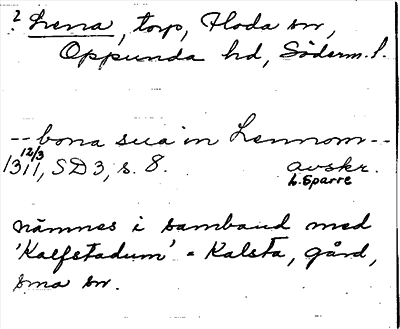 ? Lena, torp, Floda sn,
Oppunda hd, Söderm.l.
-- bona sua in Lennom --
1311 12/3, SD 3, s. 8. avskr.
L. Sparre
nämnes i samband med
'Kalfstadum' = Kalsta, gård,
sma sn.